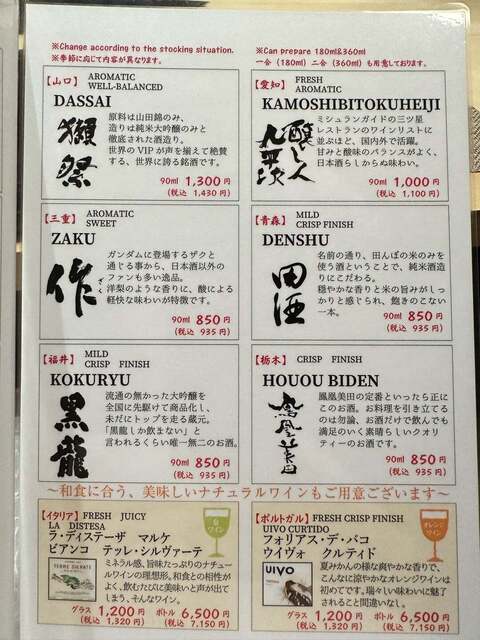 ※Change according to the stocking situation.
※季節に応じて内容が異なります。
※Can prepare 180ml&360ml
一合（180ml）二合（360ml）も用意しております。
【山口】 AROMATIC
WELL-BALANCED
DASSAI
獺祭
原料は山田錦のみ、
造りは純米大吟醸のみと
徹底された酒造り。
世界のVIPが声を揃えて絶賛
する、世界に誇る銘酒です。
90ml 1,300円
(税込 1,430円)
【愛知】 FRESH
AROMATIC
KAMOSHIBITOKUHEIJI
醸し人
九平次
ミシュランガイドの三ツ星
レストランのワインリストに
並ぶほど、国内外で活躍。
甘みと酸味のバランスがよく、
日本酒らしからぬ味わい。
90ml 1,000円
(税込 1,100円)
【三重】 AROMATIC
SWEET
ZAKU
作
ざく
ガンダムに登場するザクと
通じる事から、日本酒以外の
ファンも多い逸品。
洋梨のような香りに、酸による
軽快な味わいが特徴です。
90ml 850円
(税込 935円)
【青森】 MILD
CRISP FINISH
DENSHU
田酒
名前の通り、田んぼの米のみを
使う酒ということで、純米酒造
りにこだわる。
穏やかな香りと米の旨みがしっ
かりと感じられ、飽きのこない
一本。
90ml 850円
(税込 935円)
【福井】 MILD
CRISP FINISH
KOKURYU
黒龍
流通の無かった大吟醸を
全国に先駆けて商品化し、
未だにトップを走る蔵元。
「黒龍しか飲まない」と
言われるくらい唯一無二のお酒。
90ml 850円
(税込 935円)
【栃木】 CRISP FINISH
HOUOU BIDEN
鳳凰美田
鳳凰美田の定番といったら正に
このお酒。お料理を引き立てるの
は勿論、お酒だけで飲んでも
満足のいく素晴らしいクオリ
ティーのお酒です。
90ml 850円
(税込 935円)
～和食に合う、美味しいナチュラルワインもご用意ございます～
【イタリア】FRESH JUICY
LA DISTESA
ラ・ディステーザ マルケ
ビアンコ テッレ・シルヴァーテ
白
ワイン
TERRE SILVATE
ミネラル感、旨味たっぷりのナチュー
ルワインの理想形。和食との相性が
よく、飲むたびに美味いと声が出て
しまう、そんなワイン。
グラス 1,200円 ボトル 6,500円
(税込 1,320円) (税込 7,150円)
【ポルトガル】FRESH CRISP FINISH
UIVO CURTIDO
フォリアス・デ・バコ
ウイヴォ クルティド
オレンジ
ワイン
UIVO
夏みかんの様な爽やかな香りで、
こんなに涼やかなオレンジワインは
初めてです。瑞々しい味わいに魅了
されること間違いなし。
グラス 1,200円 ボトル 6,500円
(税込 1,320円) (税込 7,150円)